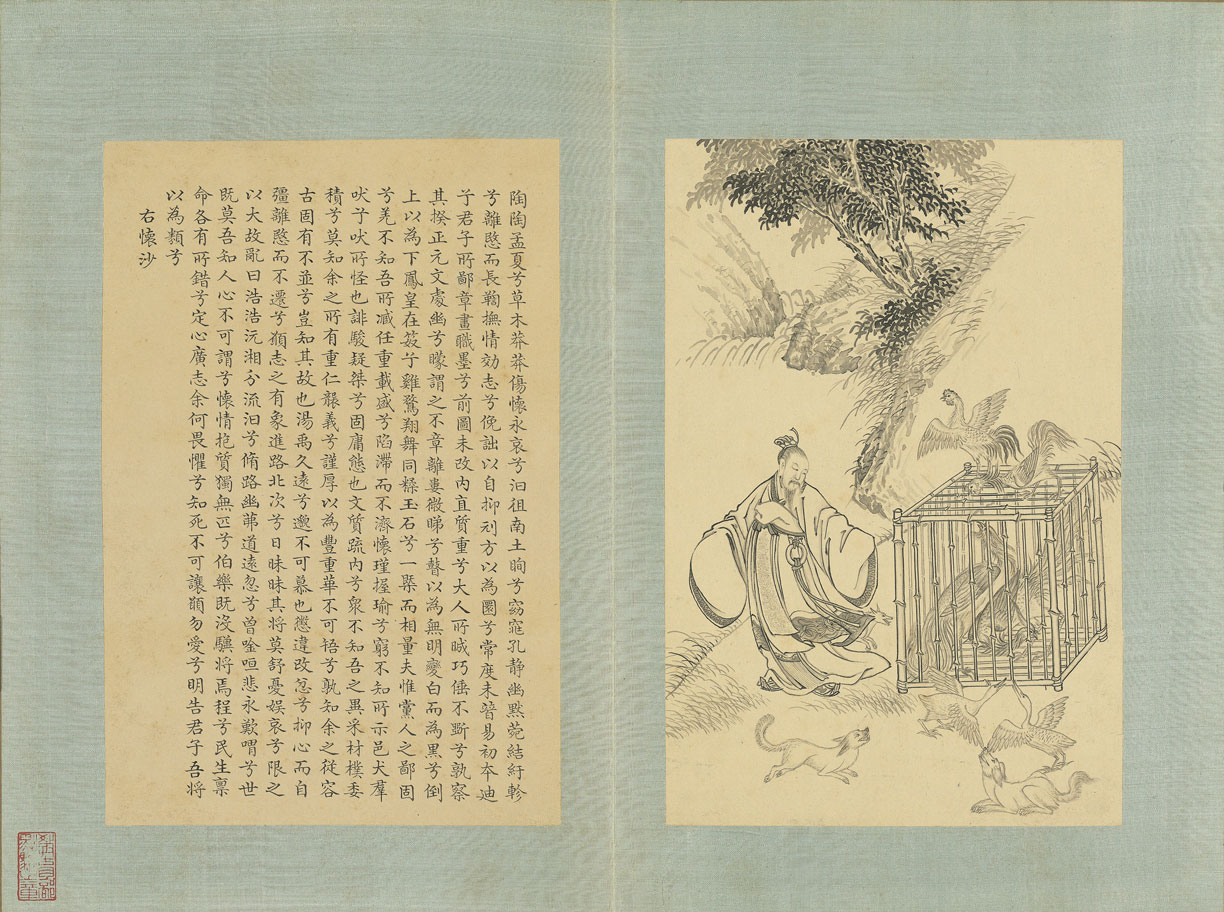 陶陶孟夏兮草木莽莽傷懷永哀兮汩徂南土眴兮窈窕孔静幽默菀結紆軫
兮離愍而長鞠撫情効志兮俛詘以自抑刓方以為圜兮常度未替易初本迪
兮君子所鄙章畫職墨兮前圖未改内直質重兮大人所晠巧倕不斲兮孰察
其揆正元文處幽兮矇謂之不章離婁微睇兮瞽以為無明變白而為黑兮倒
上以為下鳳皇在笯兮雞鶩翔舞同糅玉石兮一槩而相量夫惟黨人之鄙固
兮羌不知吾所臧任重載盛兮陷滯而不濟懷瑾握瑜兮窮不知所示邑犬羣
吠兮吠所怪也誹駿疑桀兮固庸態也文質疏内兮衆不知吾之異采材樸委
積兮莫知余之所有重仁襲義兮謹厚以為豐重華不可牾兮孰知余之從容
古固有不並兮豈知其故也湯禹久遠兮邈不可慕也懲違改忿兮抑心而自
彊離愍而不遷兮願志之有象進路北次兮日昧昧其將莫舒憂娛哀兮限之
以大故亂曰浩浩沅湘分流汩兮脩路幽茀道遠忽兮曾唫恒悲永歎喟兮世
既莫吾知人心不可謂兮懷情抱質獨無匹兮伯樂既沒驥將焉程兮民生稟
命各有所錯兮定心廣志余何畏懼兮知死不可讓願勿愛兮明告君子吾將
以為類兮
右懷沙